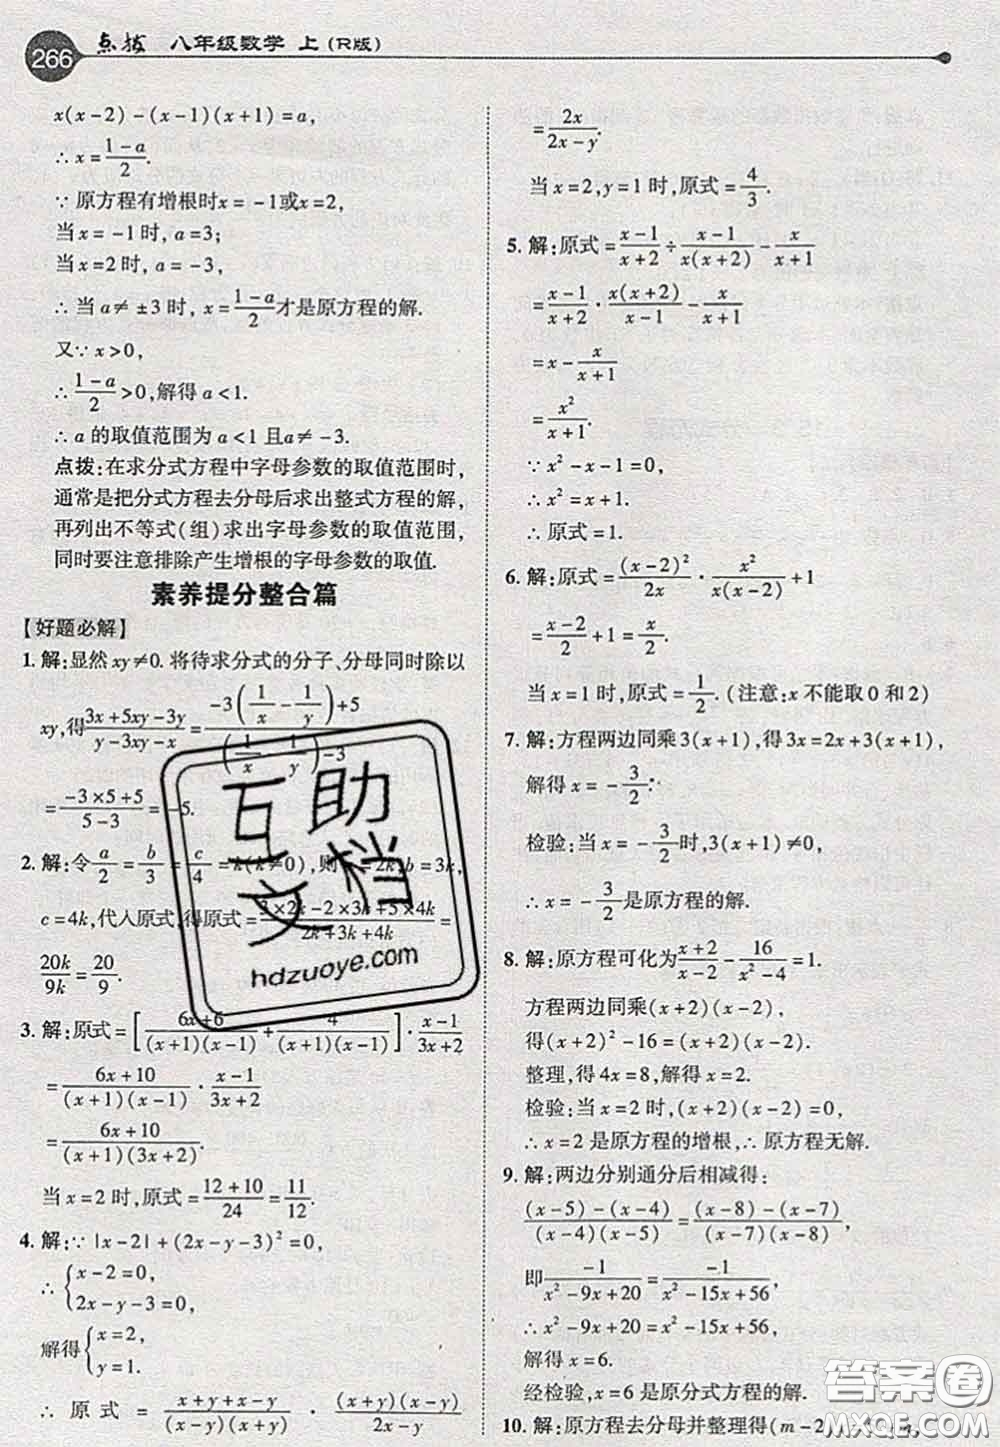 266 点拨 八年级数学 上(R版)
x(x-2)-(x-1)(x+1)=a,
∴x=\frac{1-a}{2}.
∵原方程有增根时x=-1或x=2,
当x=-1时,a=3;
当x=2时,a=-3,
∴当a≠±3时,x=\frac{1-a}{2}才是原方程的解.
又∵x>0,
∴\frac{1-a}{2}>0,解得a<1.
∴a的取值范围为a<1且a≠-3.
点拨:在求分式方程中字母参数的取值范围时,
通常是把分式方程去分母后求出整式方程的解,
再列出不等式(组)求出字母参数的取值范围,
同时要注意排除产生增根的字母参数的取值.
素养提分整合篇
【好题必解】
1.解:显然xy≠0.将待求分式的分子、分母同时除以
xy,得\frac{3x+5xy-3y}{y-3xy-x}=\frac{-3(\frac{1}{x}-\frac{1}{y})+5}{(\frac{1}{x}-\frac{1}{y})-3}
=\frac{-3×5+5}{5-3}=-5.
2.解:令\frac{a}{2}=\frac{b}{3}=\frac{c}{4}=k(k≠0),则a=2k,b=3k,
c=4k,代入原式,得原式=\frac{3×2k-2×3k+5×4k}{2k+3k+4k}=
\frac{20k}{9k}=\frac{20}{9}.
3.解:原式=[\frac{6x+6}{(x+1)(x-1)}+\frac{4}{(x+1)(x-1)}]·\frac{x-1}{3x+2}
=\frac{6x+10}{(x+1)(x-1)}·\frac{x-1}{3x+2}
=\frac{6x+10}{(x+1)(3x+2)}.
当x=2时,原式=\frac{12+10}{24}=\frac{11}{12}.
4.解:∵|x-2|+(2x-y-3)^2=0,
∴{x-2=0,
2x-y-3=0,
解得{x=2,
y=1.
∴原式=\frac{x+y+x-y}{(x-y)(x+y)}·\frac{(x+y)(x-y)}{2x-y}
=\frac{2x}{2x-y}.
当x=2,y=1时,原式=\frac{4}{3}.
5.解:原式=\frac{x-1}{x+2}÷\frac{x-1}{x(x+2)}-\frac{x}{x+1}
=\frac{x-1}{x+2}·\frac{x(x+2)}{x-1}-\frac{x}{x+1}
=x-\frac{x}{x+1}
=\frac{x^2}{x+1}.
∵x^2-x-1=0,
∴x^2=x+1.
∴原式=1.
6.解:原式=\frac{(x-2)^2}{2x}·\frac{x^2}{x(x-2)}+1
=\frac{x-2}{2}+1=\frac{x}{2}.
当x=1时,原式=\frac{1}{2}.(注意:x不能取0和2)
7.解:方程两边同乘3(x+1),得3x=2x+3(x+1),
解得x=-\frac{3}{2}.
检验:当x=-\frac{3}{2}时,3(x+1)≠0,
∴x=-\frac{3}{2}是原方程的解.
8.解:原方程可化为\frac{x+2}{x-2}-\frac{16}{x^2-4}=1.
方程两边同乘(x+2)(x-2),
得(x+2)^2-16=(x+2)(x-2).
整理,得4x=8,解得x=2.
检验:当x=2时,(x+2)(x-2)=0.
∴x=2是原方程的增根,∴原方程无解.
9.解:两边分别通分后相减得:
\frac{(x-5)-(x-4)}{(x-4)(x-5)}=\frac{(x-8)-(x-7)}{(x-7)(x-8)},
即\frac{-1}{x^2-9x+20}=\frac{-1}{x^2-15x+56},
∴x^2-9x+20=x^2-15x+56,
解得x=6.
经检验,x=6是原分式方程的解.
10.解:原方程去分母并整理得(m-2)
互助
文档
hdzuoye.com
答案圈
MXQE.COM